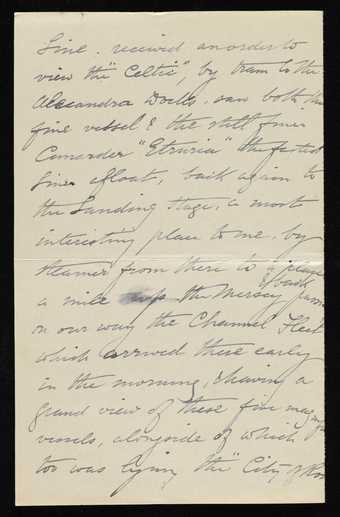 Line. received an order to
view the "Celtic", by tram to the
Alexandra Docks. saw both this
fine vessel & the still finer
Cunarder "Etruria" the fastest
liner afloat, back again to
the Landing Stage, a most
interesting place to me, by
steamer from there to a place
a mile up the Mersey & back passing
on our way the Channel Fleet
which arrived there early
in the morning, & having a
grand view of these fine
vessels, alongside of which
too was lying the "City of